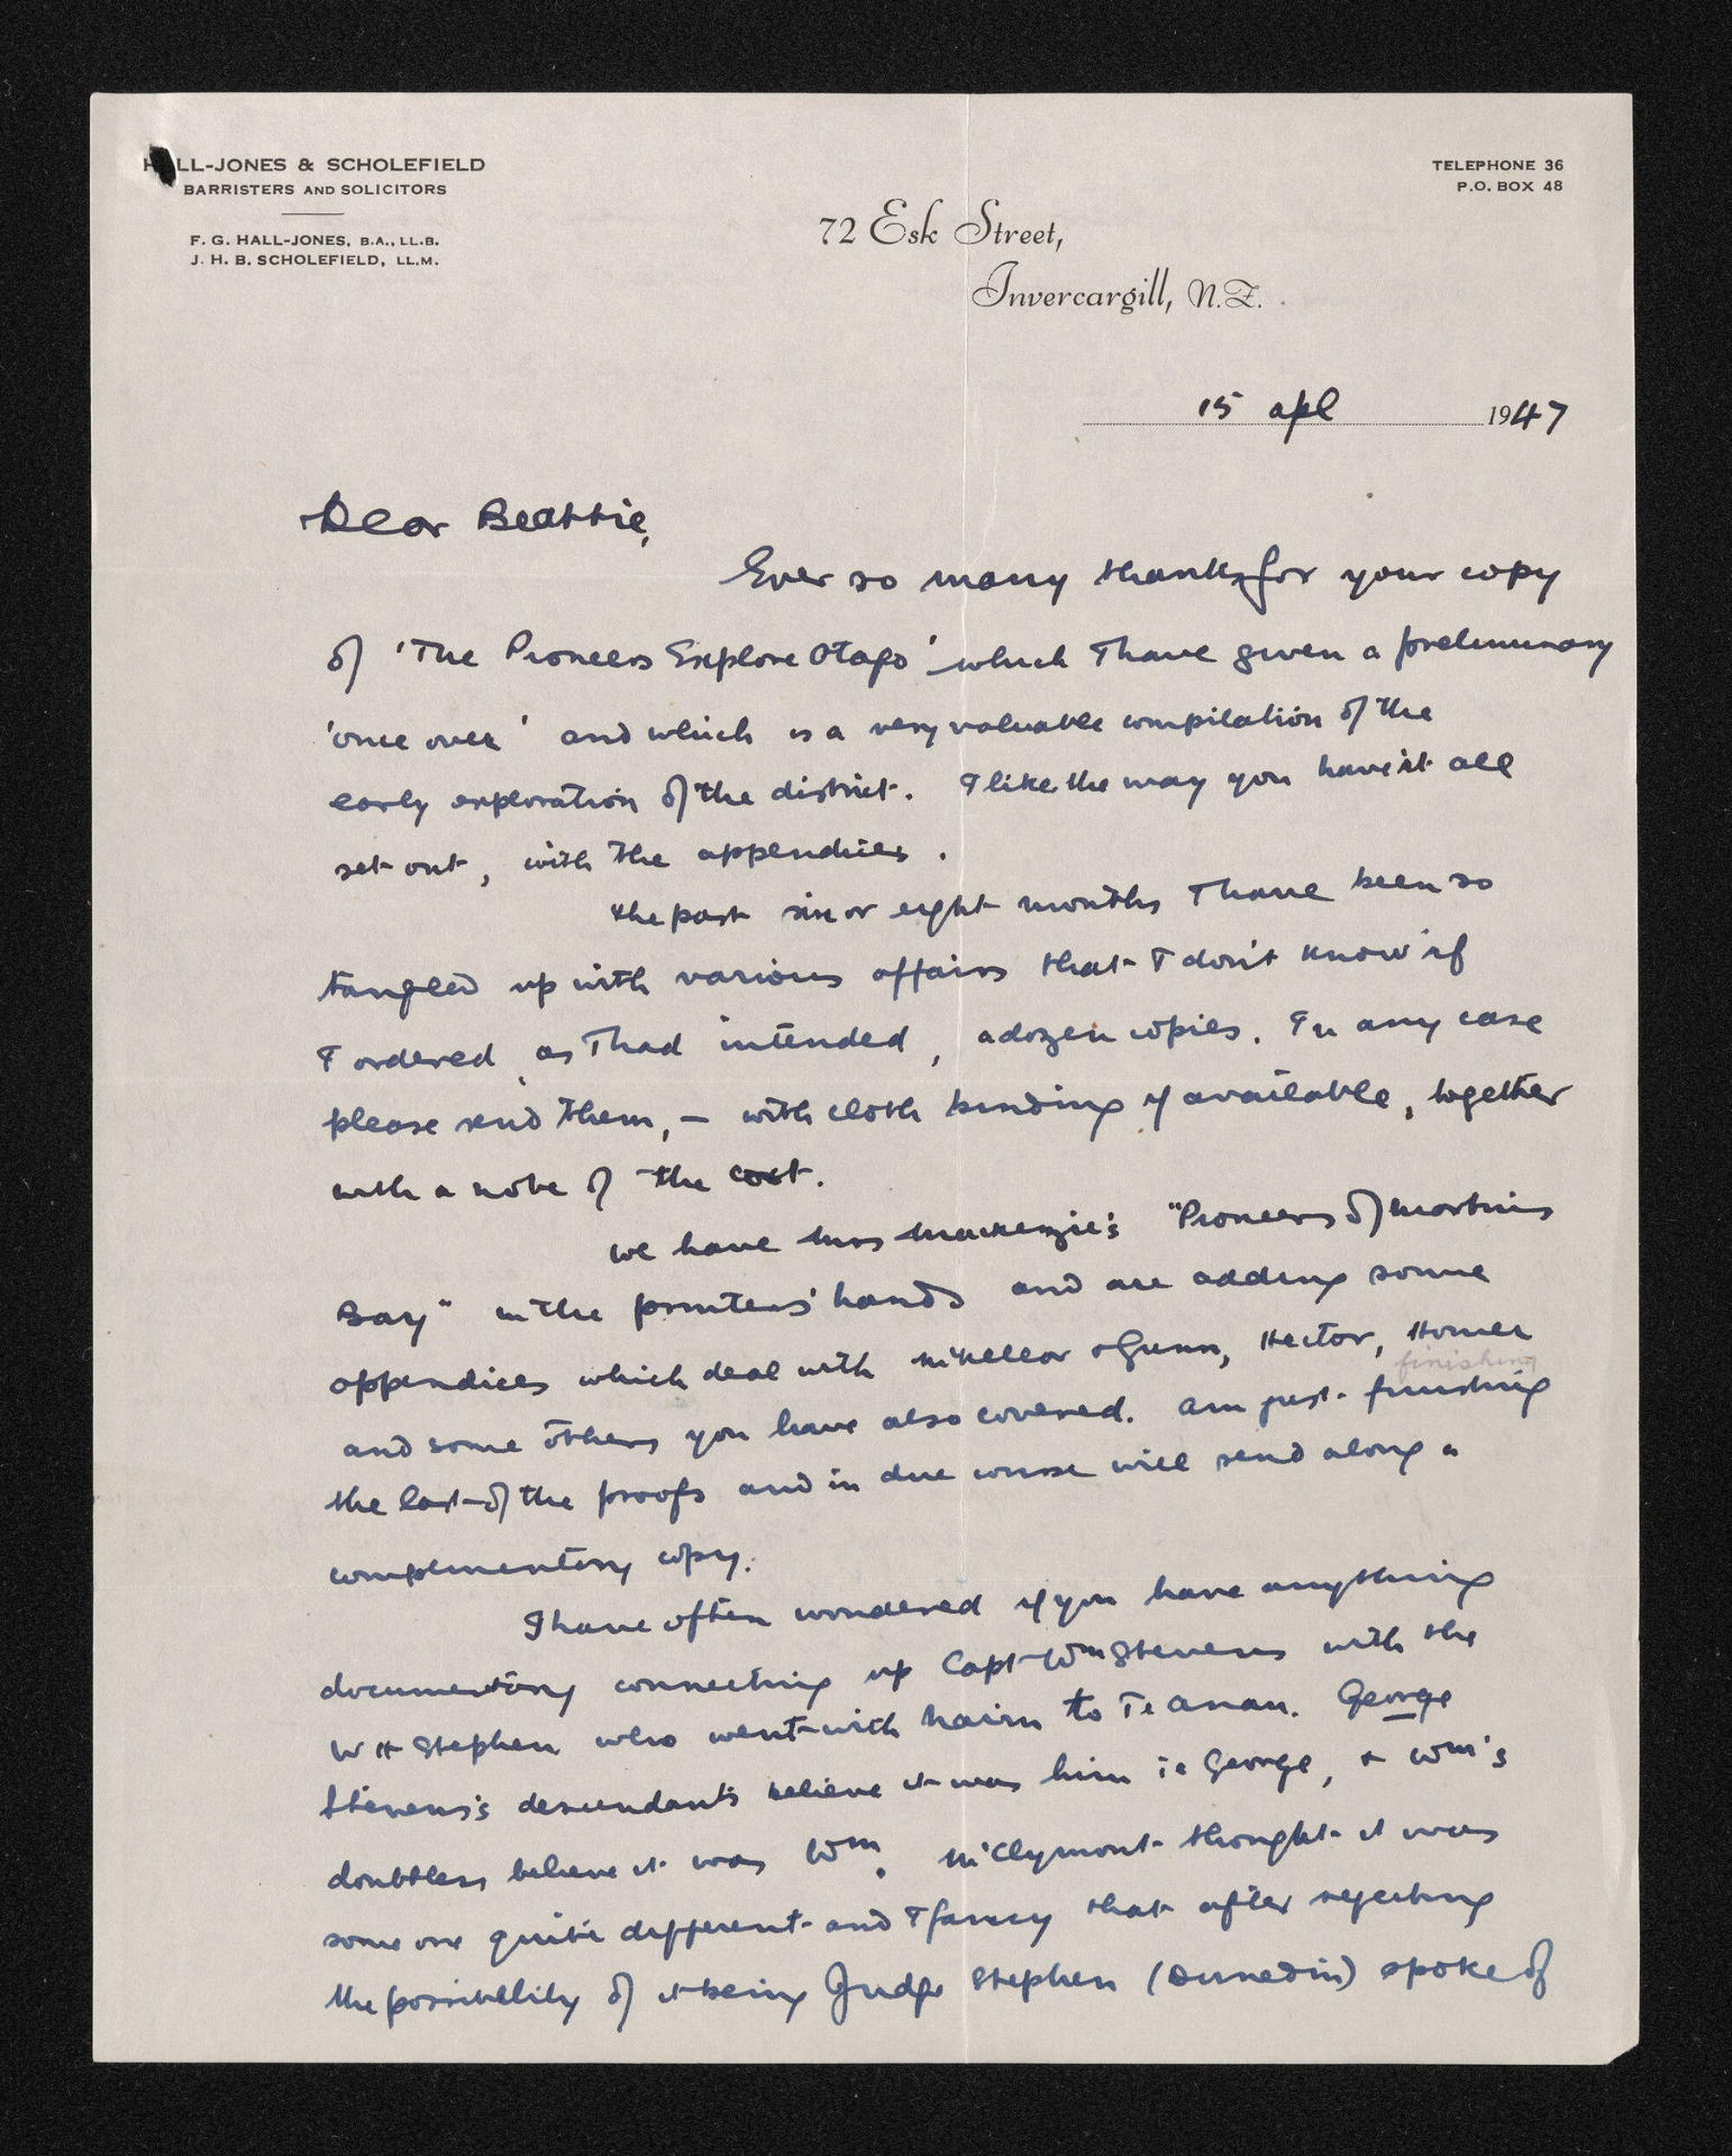 HALL-JONES & SCHOLEFIELD
BARRISTERS AND SOLICITORS
F. G. HALL-JONES, B.A., LL.B.
J. H. B. SCHOLEFIELD, LL.M.
TELEPHONE 36
P.O. BOX 48
72 Esk Street,
Invercargill, N.Z.
15 Apl 1947
Dear Beattie,
Ever so many thanks for your copy
of 'The Pioneers Explore Otago' which I have given a preliminary
'once over' and which is a very valuable compilation of the
early exploration of the district. I like the way you have it all
set out, with the appendices.
The past six or eight months I have been so
tangled up with various affairs that I don't know if
I ordered, as I had intended, a dozen copies. In any case
please send them, — with cloth binding if available, together
with a note of the cost.
We have Mrs Mackenzie's "Pioneers of Martins
Bay" in the printers' hands and are adding some
appendices which deal with McKellar & Gunn, Hector, Homer
finishing
and some others you have also covered. Am just finishing
the last of the proofs and in due course will send along a
complimentary copy.
I have often wondered if you have anything
documentary connecting up Capt Wm Stevens with the
W H Stephen who went with Nairn to Te Anau. George
Stevens's descendants believe it was him ie George, & Wm's
doubtless believe it was Wm. McClymont thought it was
some one quite different and I fancy that after rejecting
the possibility of it being Judge Stephen (Dunedin) spoke of